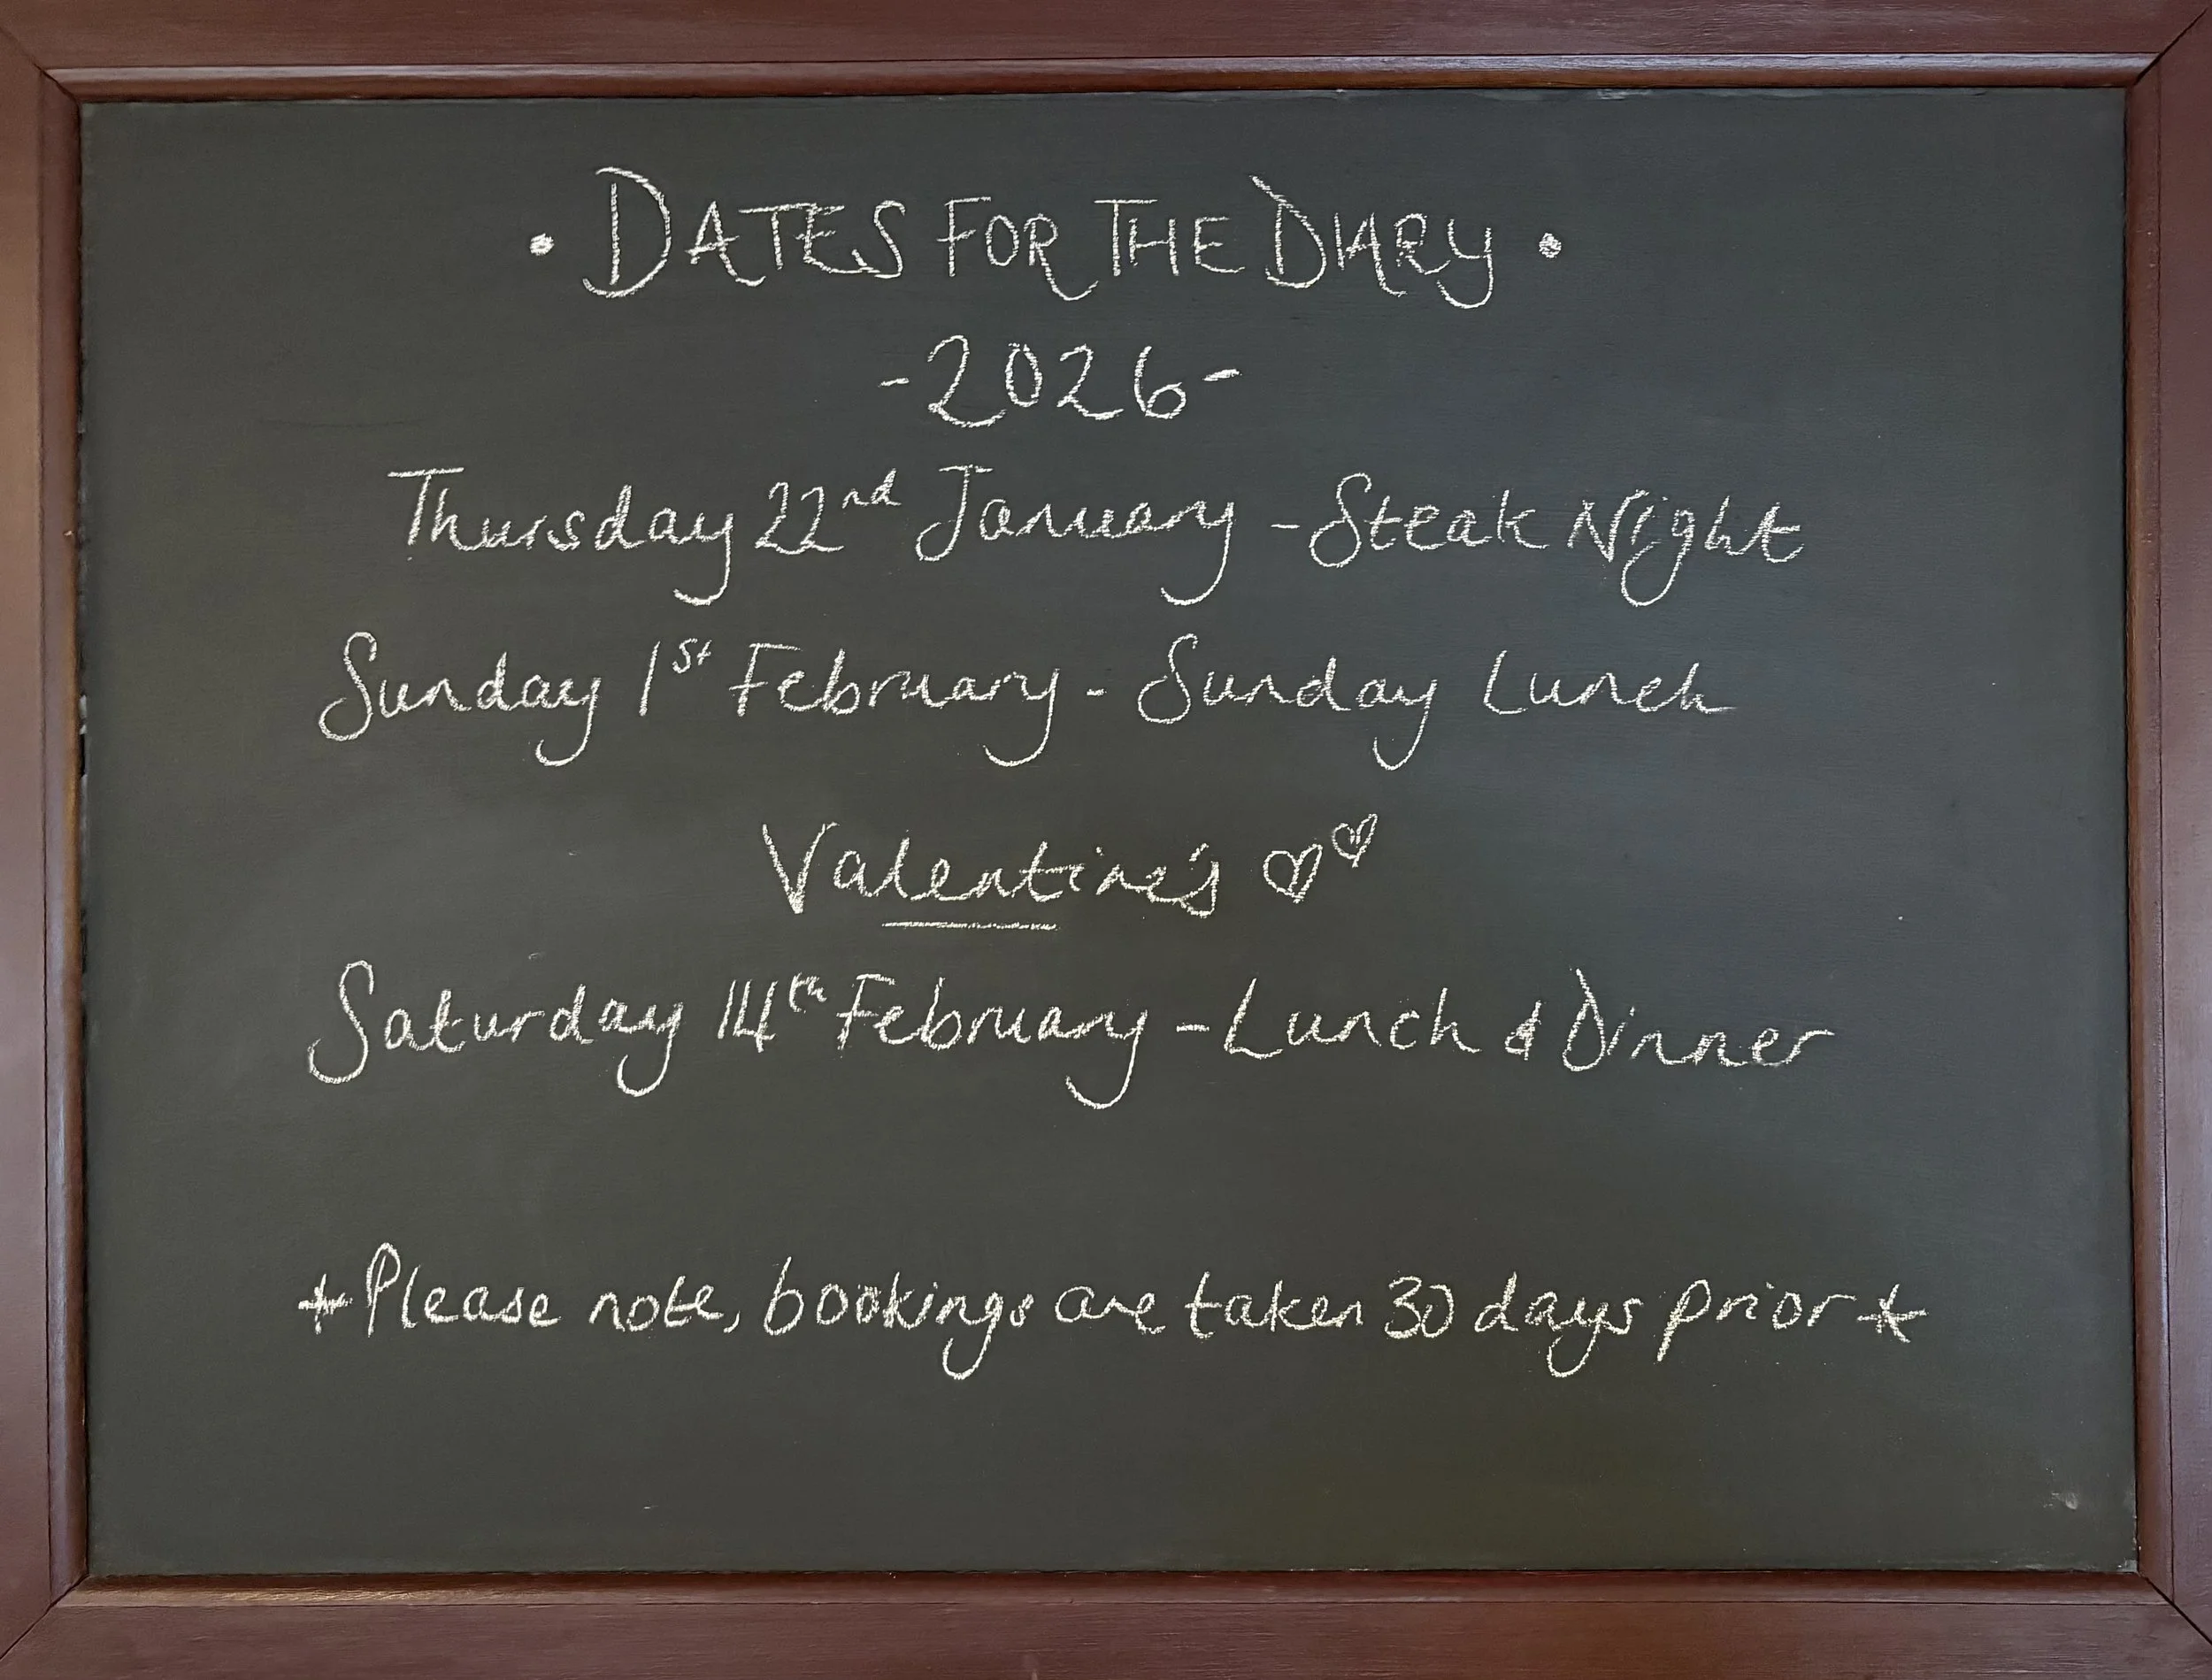 • DATES FOR THE DIARY •
-2026-
Thursday 22nd January - Steak Night
Sunday 1st February - Sunday Lunch
Valentine's ♡♡
Saturday 14th February - Lunch & Dinner
*Please note, bookings are taken 30 days prior*